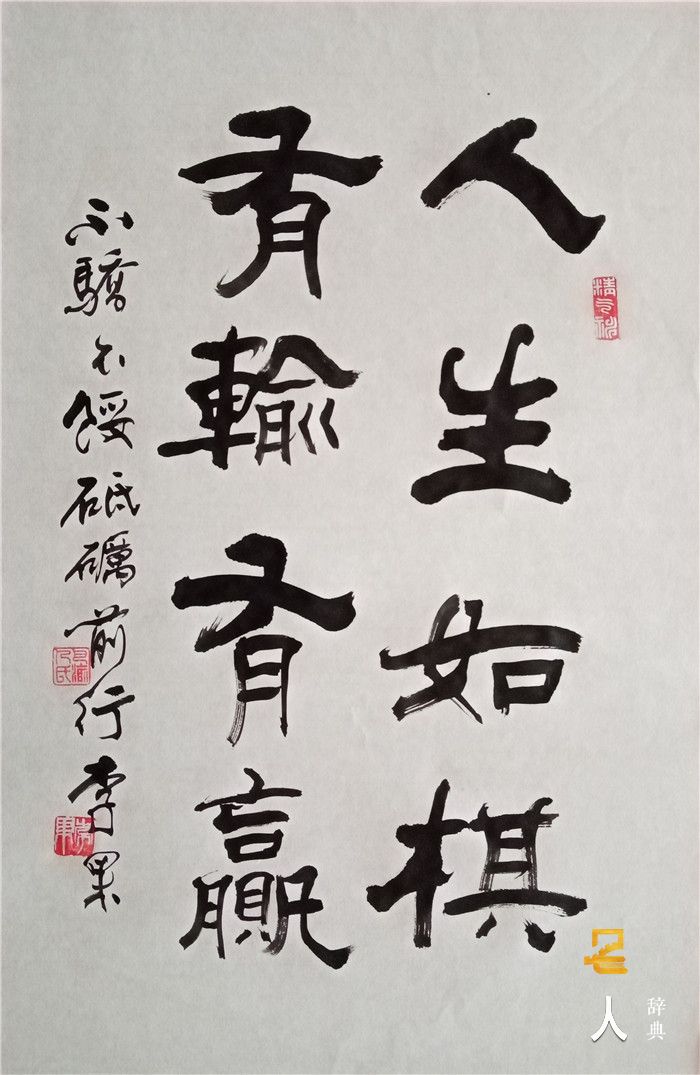 人生如棋
有輸有贏
不驕不餒砥礪前行李果
精气神
名人
辞典